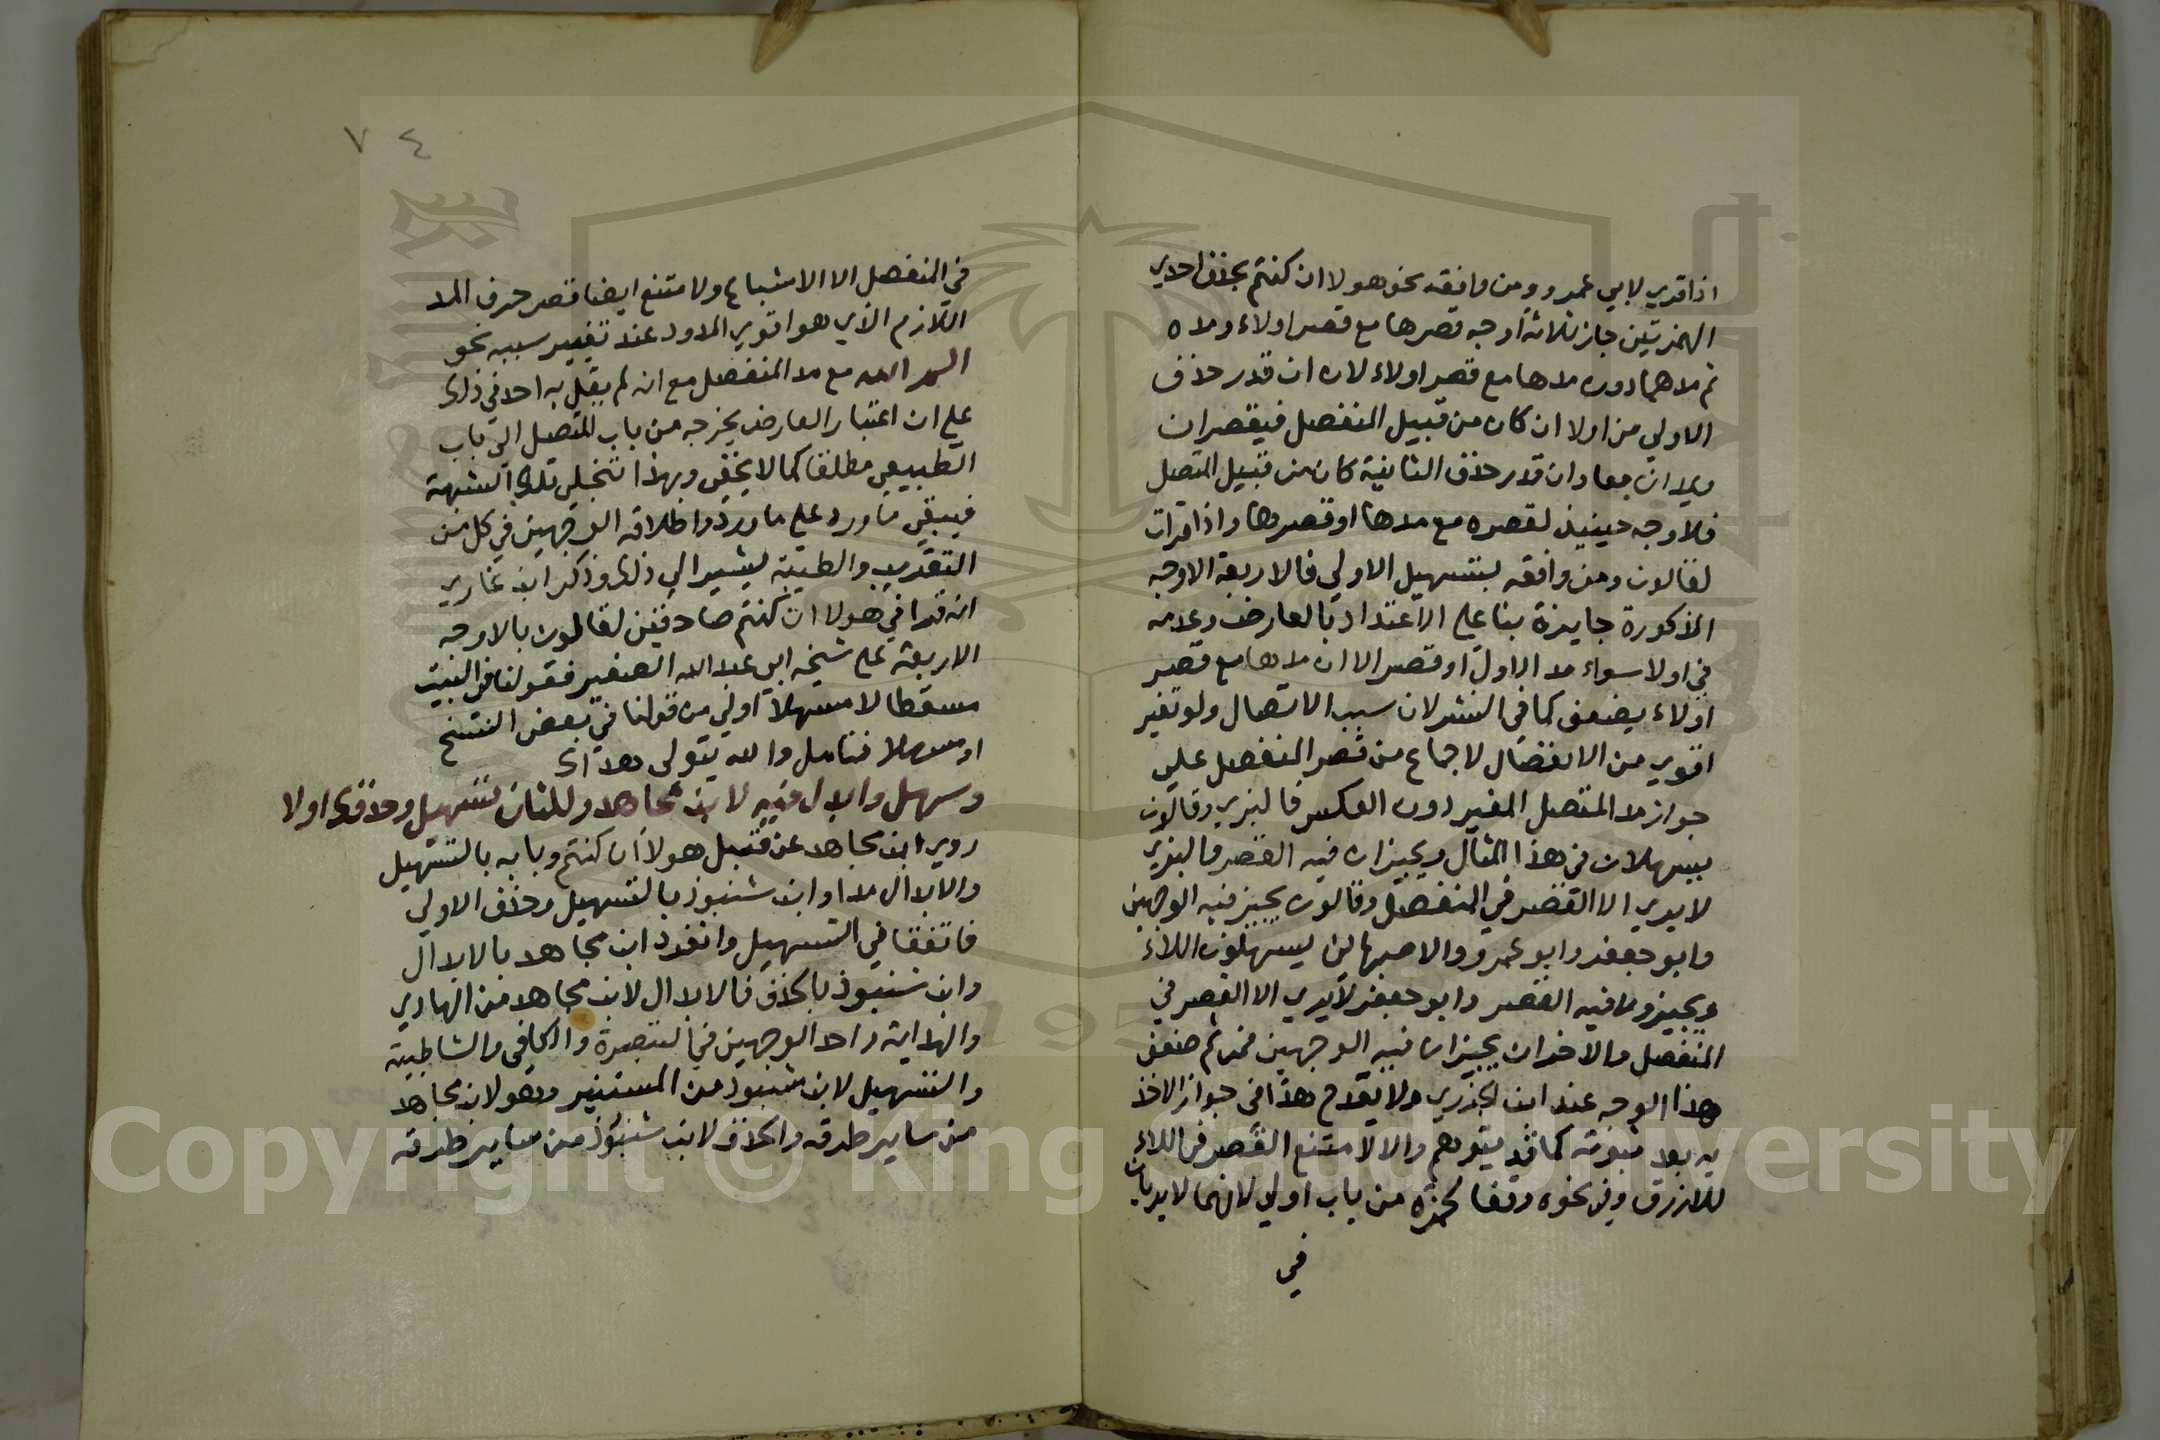 اذا قري لابي عمرو ومن وافقه نحو هولا ان كنتم بحذف احدي
الهمزتين جاز ثلاثة اوجه قصرها مع قصر اولاء ومده
ثم مدهما دون مدها مع قصر اولاء لان ان قدر حذف
الاولي من اولا ان كان من قبيل المنفصل فيقصران
ويمدان معا وان قدر حذف الثانية كان من قبيل المتصل
فلا وجه حينيذ لقصره مع مدها او قصرها واذا قرات
لقالون ومن وافقه بتسهيل الاولي فالاربعة الاوجه
المذكورة جايزة بنا علي الاعتداد بالعارض وعدمه
في اولا سواء مد الاول او قصر الا ان مدها مع قصر
اولاء يضعف كما في النشر لان سبب الاتصال ولو تغير
اقوي من الانفصال لاجماع من قصر المنفصل علي
جواز مد المتصل المغير دون العكس فالبزي وقالون
يسهلان في هذا المثال ويجيزان فيه القصر والبزي
لا يري الا القصر في المنفصل وقالون يجيز فيه الوجهين
وابو جعفر وابو عمرو والاصبهاني يسهلون اللاء
ويجيزون فيه القصر وابو جعفر لا يري الا القصر في
المنفصل والاخران يجيزان فيه الوجهين فمن ثم ضعف
هذا الوجه عند ابن الجزري ولا يقدح هذا في جواز الاخذ
به بعد ثبوته كما قد يتوهم والا لامتنع القصر في اللاء
للازرق وفي نحوه وقفا لحمزه من باب اولي لانهما لا يريان
في
٧٤
في المنفصل الا الاشباع ولا متنع ايضا قصر حرف المد
اللازم الذي هو اقوي المدود عند تغيير سببه نحو
الم الله مع مد المنفصل مع انه لم يقل به احد في ذلك
علي ان اعتبار العارض يخرجه من باب المتصل الي باب
الطبيعي مطلقا كما لا يخفي وبهذا تنجلي تلك الشبهة
فيبقي ما ورد علي ما ورد واطلاق الوجهين في كل من
التقريب والطيبة يشير الي ذلك وذكر ابن غازي
انه قرا في هولا ان كنتم صادقين لقالون بالاوجه
الاربعة علي شيخه ابي عبد الله الصغير فقولنا في البيت
مسقطا لا مسهلا اولي من قولنا في بعض النسخ
او مسهلا فتامل والله يتولي هداك
وسهل وابدل فيه لابن مجاهد وللثان تسهيل وحذفك اولا
روي ابن مجاهد عن قنبل هولا ان كنتم وبابه بالتسهيل
والابدال مدا وابن شنبوذ بالتسهيل وحذف الاولي
فاتفقا في التسهيل وانفرد ابن مجاهد بالابدال
وابن شنبوذ بالحذف فالابدال لابن مجاهد من الهادي
والهداية واحد الوجهين في التبصرة والكافي والشاطبية
والتسهيل لابن شنبوذ من المستنير وهو لابن مجاهد
من ساير طرقه والحذف لابن شنبوذ من ساير طرقه
Copyright © King Saud University